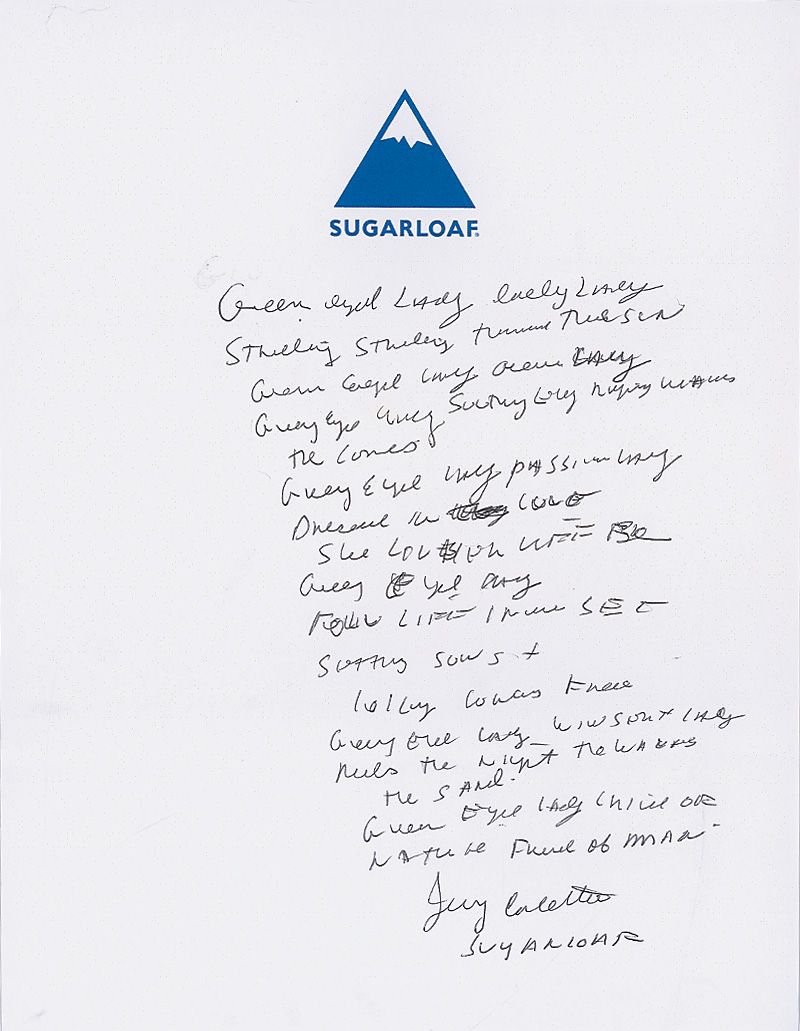 SUGARLOAF
Green eyed Lady lovely Lady
Strolling Strolling the SUN
Green Eyed Lady Ocean Lady
Green Eye Lady Soothing Every
the comes
Green Eyed Lady passion Lady
Dressed in LOVE
She LIFE
Green Eyed Lady
LIFE SEE
Setting SUNS +
Free
Green Eyed Lady WINDSWEPT Lady
Rules the Night the WAVES
the SAND.
Green Eyed Lady Child OF
NATURE Friend of MAN.
Jerry Corbetta
SUGARLOAF